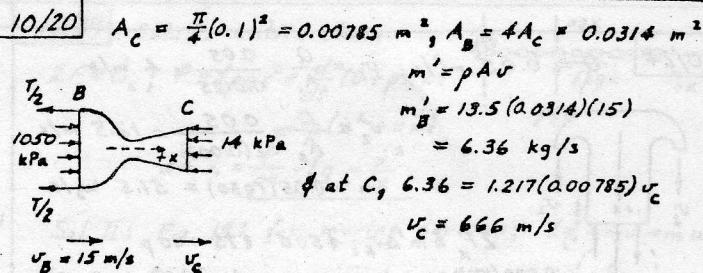 10/20 A_C = π/4 (0.1)² = 0.00785 m², A_B = 4A_C = 0.0314 m²
m' = ρAv
m'_B = 13.5(0.0314)(15)
= 6.36 kg/s
& at C, 6.36 = 1.217(0.00785)v_C
v_C = 666 m/s
T/2 B C
1050 kPa +x 14 kPa
T/2
v_B = 15 m/s v_C